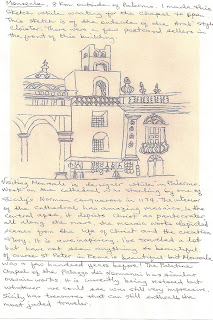 Monreale, 8 Km outside of Palermo. I made this
Sketch while waiting for the Chapel to open
This sketch is of the exterior of the Arab style
Cloister. There were a few postcard sellers in
the front of this building.
Visiting Monreale is de rigeur while in Palermo.
Went in the Cathedral, the crowning glory of
Sicily's Norman conquerors in 1174. The interior
of the Cathedral has amazing mosaics. In the
central apse, it depicts Christ as pantocrator
all along the nave. The mosaic works depicted
scenes from the life of Christ and the creation
story. It is awe inspiring. I've traveled a lot
but have not seen anything so beautiful.
Of course St Peter in Rome is beautiful but Monreale
was a few hundred years before! The Palatine
Chapel of the Palazzo dei Normanni has similar
mosaic works. It is currently being restored but
whatever we could see was still very impressive.
Sicily has treasures that can still enthrall the
most jaded traveler.